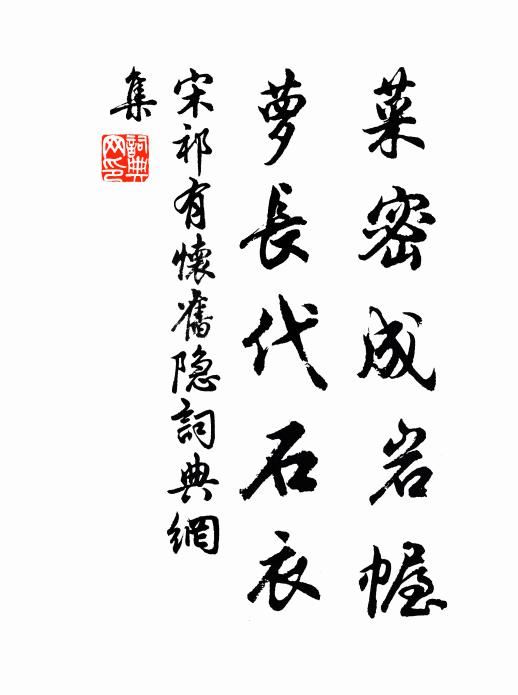 葉密成岩幄
萝長代石衣
宋祁有懷舊隐詞典網
集
詞典
网印